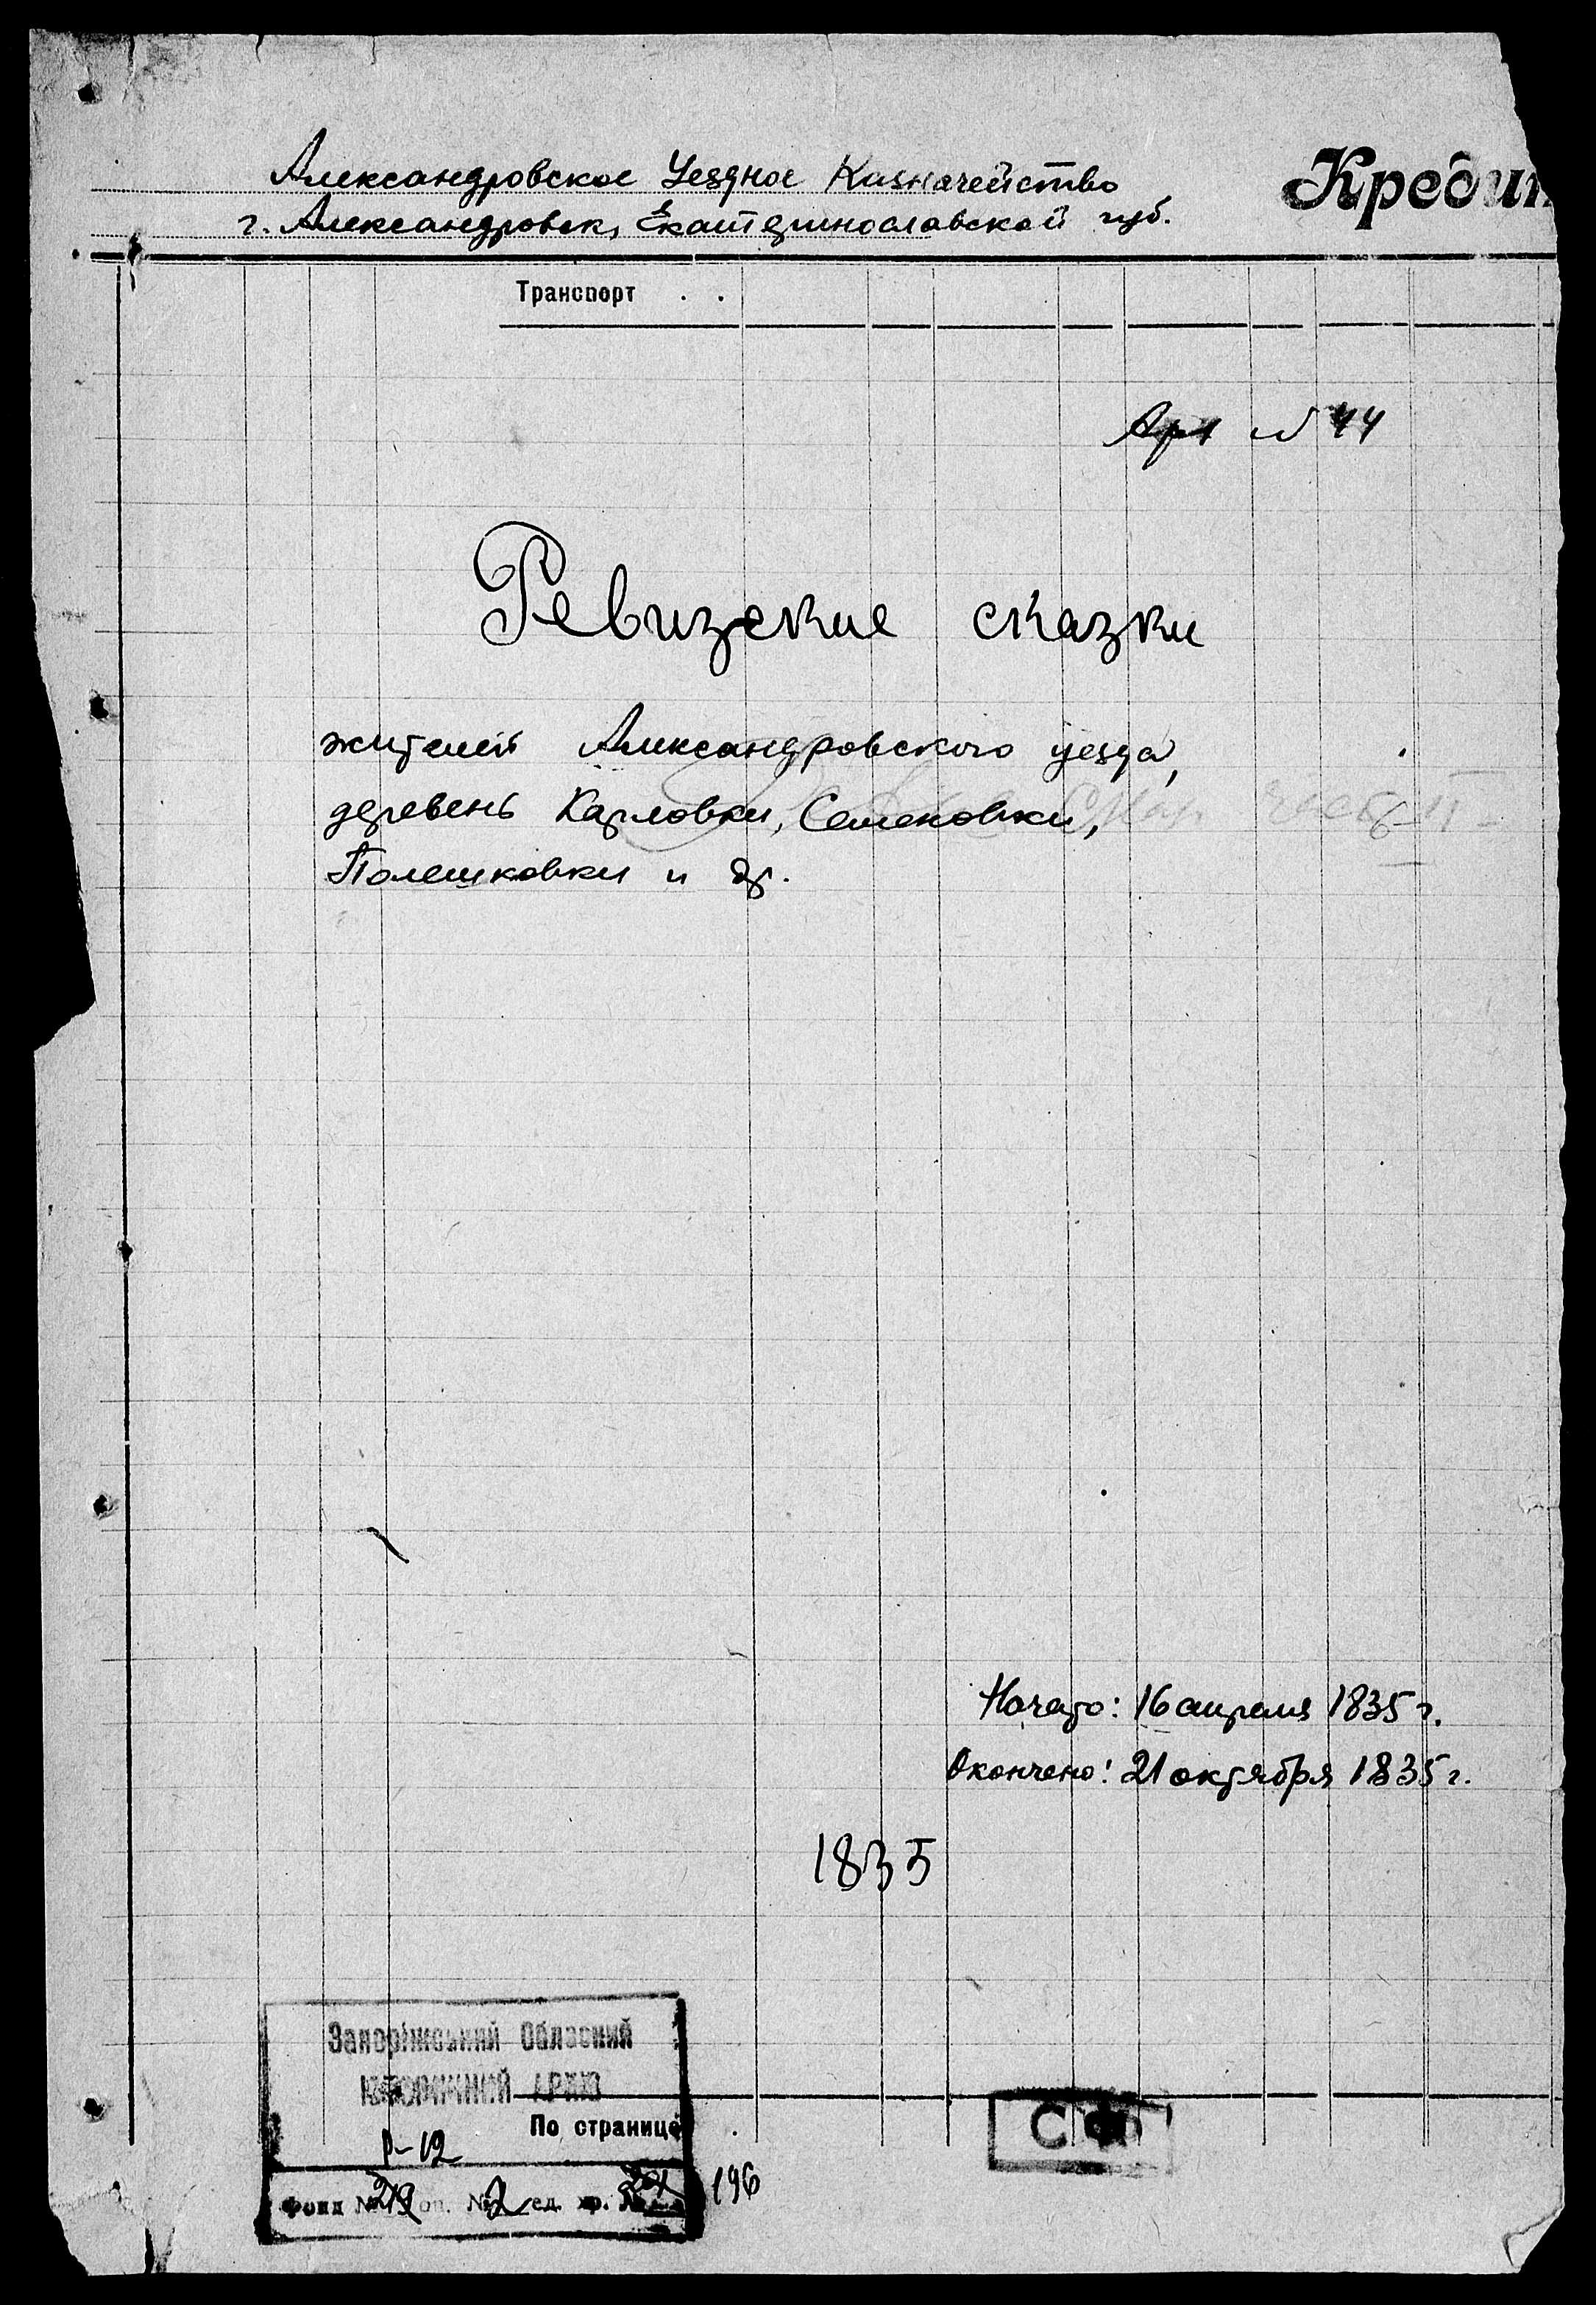 Александровское Уездное Казначейство
Кредит
г. Александровск, Екатеринославской губ.
Транспорт . .
Арх № 44
Ревизские сказки
жителей Александровского уезда,
деревень Карловки, Семеновки,
Полешковки и др.
Начато: 16 апреля 1835 г.
Окончено: 21 октября 1835 г.
1835
Запоріжський Обласний
По странице .
СФ
р-12
Фонд № оп. № 2 ед. хр. №
196